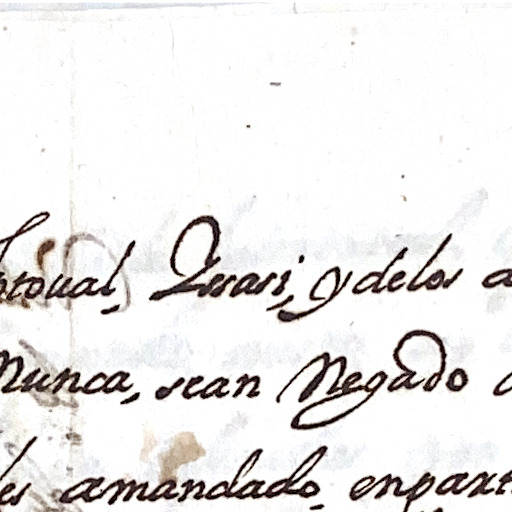 ptoual, Ysasi, y delos a
Nunca, sean Negado
les amandado enpart